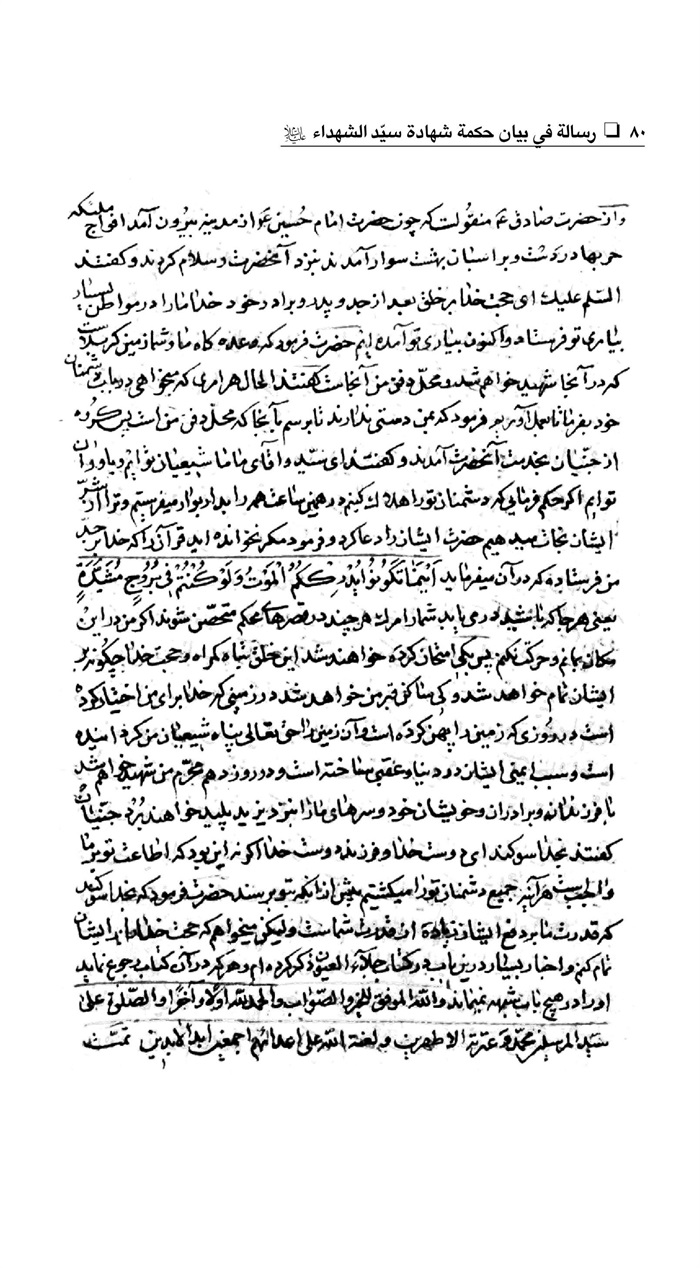 ٨٠ ❏ رسالة في بيان حكمة شهادة سيّد الشهداء عليه السلام
و از حضرت صادق ع منقولست که چون حضرت امام حسین ع از مدینه بیرون آمد افواج ملئکه
حربها در دست و بر اسبان بهشت سوار آمدند نزد آنحضرت و سلام کردند و گفتند
السلم علیك ای حجت خدا بر خلق بعد از جد و پدر و برادر خود خدا ما را در مواطن بسیار
بیاری تو فرستاد و اکنون بیاری تو آمده ایم حضرت فرمود که وعده گاه ما و شما زمین کربلاست
که در آنجا شهید خواهم شد و محل دفن من آنجاست گفتند الحال هر امری که میخواهی در باب دشمنان
خود بفرما تا بعمل آوریم فرمود که بمن دستی ندارند تا برسم بآنجا که محل دفن من است پس گروه
از جنّیان بخدمت آنحضرت آمدند و گفتند ای سید و آقای ما ما شیعیان توایم و یاوران
توایم اگر حکم فرمایی که دشمنان تو را هلاك کنیم در همین ساعت همه را بدار بوار میفرستیم و ترا از شر
ایشان نجات میدهیم حضرت ایشان را دعا کرد و فرمود مگر نخوانده اید قرآن را که خدا بر جد
من فرستاده که در آن میفرماید أَيْنَمَا تَكُونُوا يُدْرِككُّمُ الْمَوْتُ وَلَوْ كُنْتُمْ فِي بُرُوجٍ مُشَيَّدَةٍ
یعنی هر جا که باشید در می یابد شما را مرك هر چند در قصرهای محکم متحصّن شوند اگر من در این
مکان بمانم و حرکت نکنم پس بکی امتحان کرده خواهند شد این خلق تباه گمراه و حجت خدا چگونه بر
ایشان تمام خواهد شد و کی ساکن قبر من خواهد شد در زمینی که خدا برای من اختیار کرده
است در روزی که زمین را پهن کرده است و آن زمین را حق تعالی پناه شیعیان من گردانیده
است و سبب ایمنی ایشان در دنیا و عقبی ساخته است و در روز دهم محرّم من شهید خواهم شد
با فرزندان و برادران و خویشان خود و سرهای ما را بنزد یزید پلید خواهند برد جنّیان
گفتند بخدا سوکند ای دوست خدا و فرزند دوست خدا اگر نه این بود که اطاعت تو بر ما
واجبست هر آینه جمیع دشمنان تو را میکشتیم پیش از آنکه بتو برسند حضرت فرمود که بخدا سوکند
که قدرت ما بر دفع ایشان زیاده از قدرت شماست ولیکن میخواهم که حجت خدا را بر ایشان
تمام کنم و اخبار بسیار درین باب در کتاب جلاء العیون ذکر کرده ام و هر که در آن کتاب رجوع نماید
او را در هیچ باب شبهه نمیماند و الله الموفق للخیر و الصّواب و الحمد لله اولا و آخرا و الصّلوة علی
سیّد المرسلین محمّد و عترته الاطهرین و لعنة الله علی اعدائهم اجمعین ابد الابدین تمّت